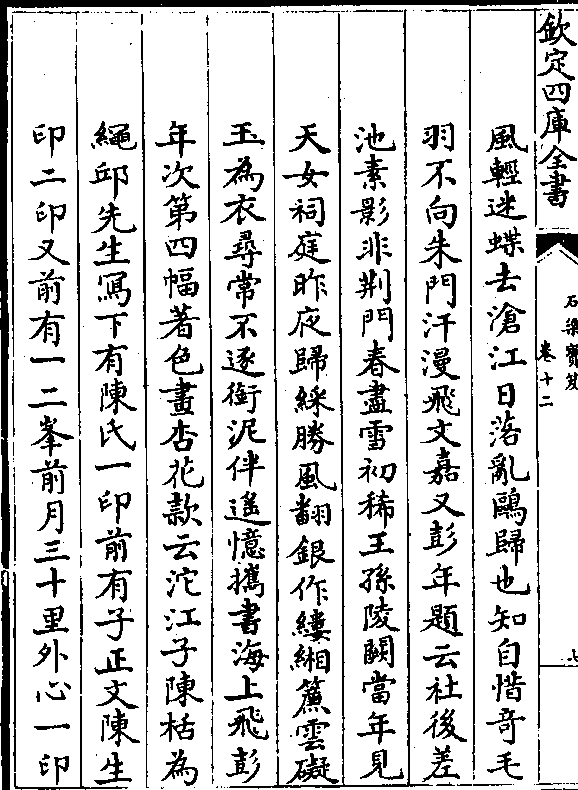 欽定四庫全書
石渠寶笈
卷十二
七
風輕迷蝶去滄江日落亂鷗歸也知自惜竒毛
羽不向朱門汗漫飛文嘉又彭年題云社後差
池素影非荆門春盡雪初稀王孫陵闕當年見
天女祠庭昨夜歸綵勝風翻銀作縷緗簾雲礙
玉為衣尋常不逐銜泥伴遥憶攜書海上飛彭
年次第四幅著色畫杏花款云沱江子陳栝為
繩邱先生寫下有陳氏一印前有子正文陳生
印二印又前有一二峯前月三十里外心一印